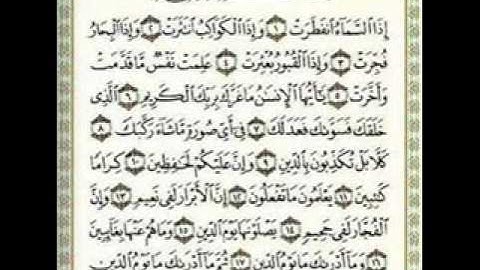 إِذَا ٱلسَّمَآءُ ٱنفَطَرَتْ ١ وَإِذَا ٱلْكَوَاكِبُ ٱنتَثَرَتْ ٢ وَإِذَا ٱلْبِحَارُ
فُجِّرَتْ ٣ وَإِذَا ٱلْقُبُورُ بُعْثِرَتْ ٤ عَلِمَتْ نَفْسٌ مَّا قَدَّمَتْ
وَأَخَّرَتْ ٥ يَٰٓأَيُّهَا ٱلْإِنسَٰنُ مَا غَرَّكَ بِرَبِّكَ ٱلْكَرِيمِ ٦ ٱلَّذِى
خَلَقَكَ فَسَوَّىٰكَ فَعَدَلَكَ ٧ فِىٓ أَىِّ صُورَةٍ مَّا شَآءَ رَكَّبَكَ ٨
كَلَّا بَلْ تُكَذِّبُونَ بِٱلدِّينِ ٩ وَإِنَّ عَلَيْكُمْ لَحَٰفِظِينَ ١٠ كِرَامًا
كَٰتِبِينَ ١١ يَعْلَمُونَ مَا تَفْعَلُونَ ١٢ إِنَّ ٱلْأَبْرَارَ لَفِى نَعِيمٍ ١٣ وَإِنَّ
ٱلْفُجَّارَ لَفِى جَحِيمٍ ١٤ يَصْلَوْنَهَا يَوْمَ ٱلدِّينِ ١٥ وَمَا هُمْ عَنْهَا بِغَآئِبِينَ
١٦ وَمَآ أَدْرَىٰكَ مَا يَوْمُ ٱلدِّينِ ١٧ ثُمَّ مَآ أَدْرَىٰكَ مَا يَوْمُ ٱلدِّينِ